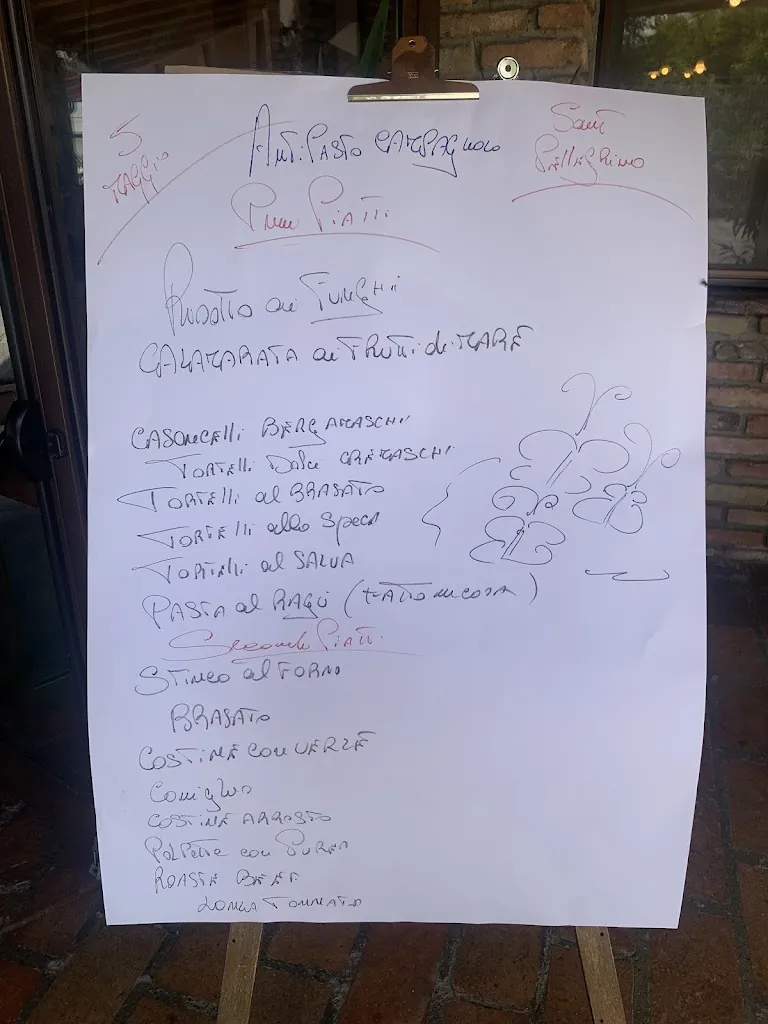 5
MAGGIO
ANTIPASTO CAMPAGNOLO
SANT
PELLEGRINO
Primi PIATTI
RISOTTO ai FUNGHI
CALAMARATA ai FRUTTI di MARE
CASONCELLI BERGAMASCHI
TORTELLI Dolci CREMASCHI
TORTELLI al BRASATO
TORTELLI allo Speck
TORTELLI al SALVA
PASTA al RAGÙ (FATTO IN CASA)
Secondi PIATTI
STINCO al FORNO
BRASATO
COSTINE CON VERZE
Coniglio
COSTINE ARROSTO
POLPETTE con PUREA
ROAST BEEF
LONZA TONNATO